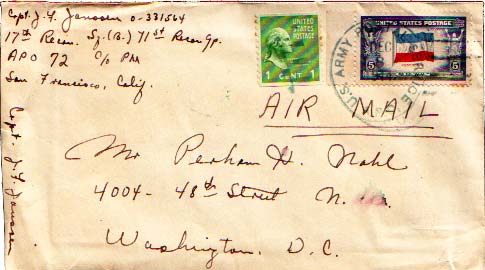 Capt. J. F. Janssen O-331564
17th Recon. Sq. (B.) 71st Recon Gp.
APO 72 c/o PM
San Francisco, Calif.
UNITED
STATES
POSTAGE
1 CENT 1
UNITED STATES POSTAGE
5 5
U.S. ARMY
DEC
AIR MAIL
Mr Perham H. Nahl
4004 - 48th Street N.
Washington, D.C.
Capt. J F Janssen